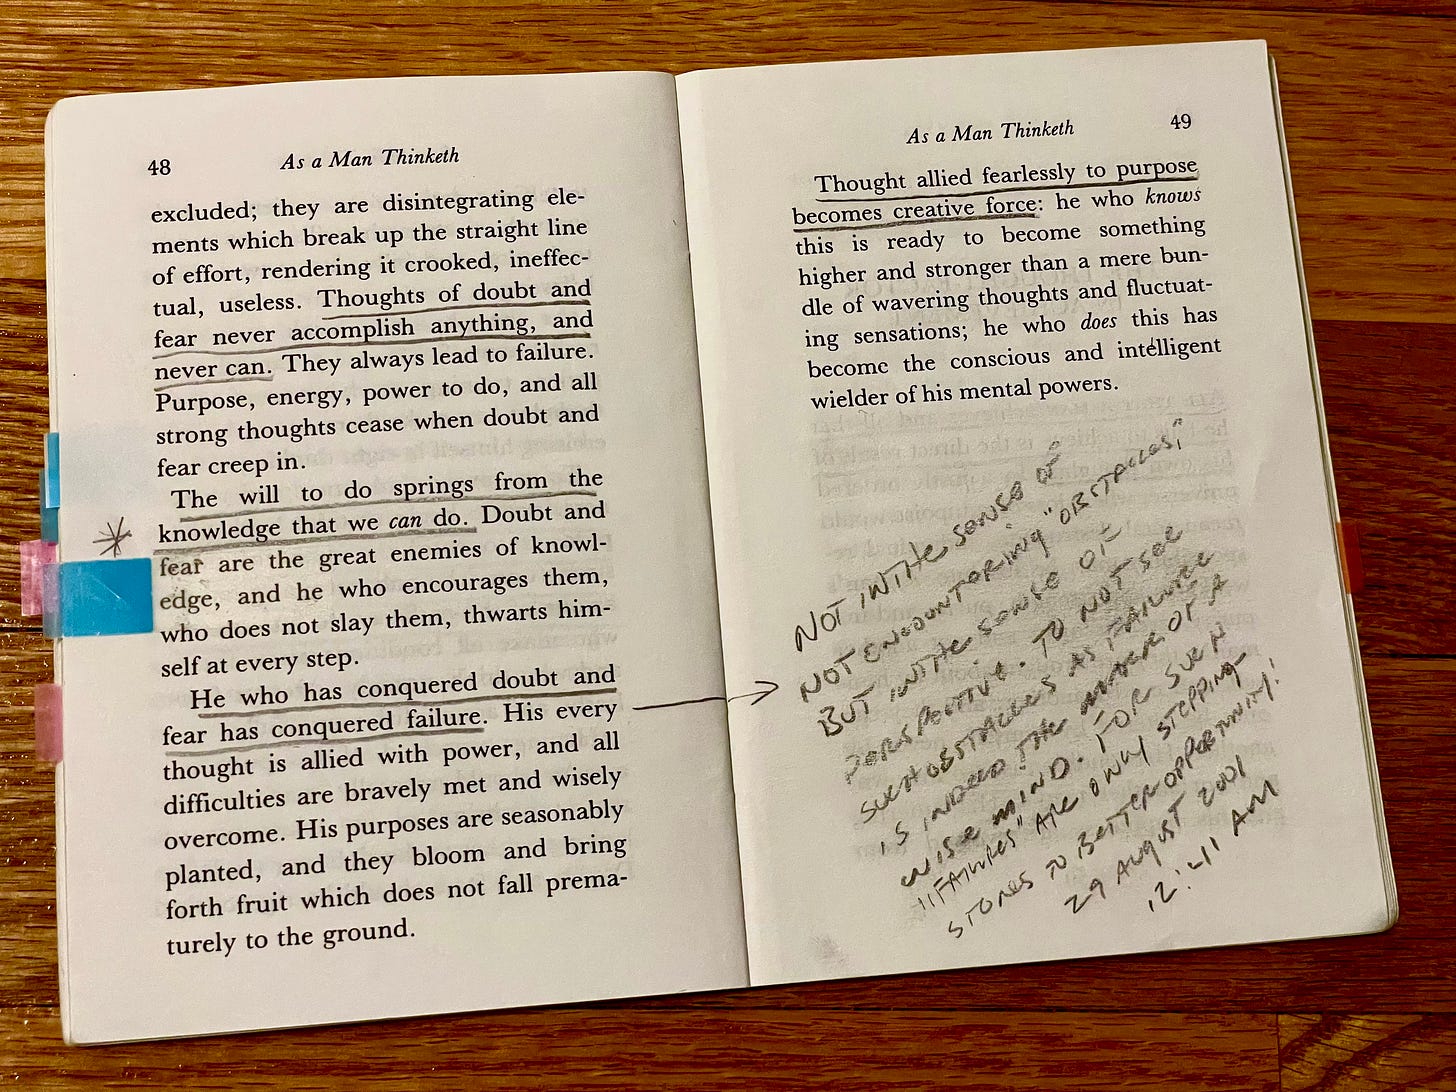 48
As a Man Thinketh
excluded; they are disintegrating ele-
ments which break up the straight line
of effort, rendering it crooked, ineffec-
tual, useless. Thoughts of doubt and
fear never accomplish anything, and
never can. They always lead to failure.
Purpose, energy, power to do, and all
strong thoughts cease when doubt and
fear creep in.
The will to do springs from the
knowledge that we can do. Doubt and
fear are the great enemies of knowl-
edge, and he who encourages them,
who does not slay them, thwarts him-
self at every step.
He who has conquered doubt and
fear has conquered failure. His every
thought is allied with power, and all
difficulties are bravely met and wisely
overcome. His purposes are seasonably
planted, and they bloom and bring
forth fruit which does not fall prema-
turely to the ground.
As a Man Thinketh
49
Thought allied fearlessly to purpose
becomes creative force: he who knows
this is ready to become something
higher and stronger than a mere bun-
dle of wavering thoughts and fluctuat-
ing sensations; he who does this has
become the conscious and intelligent
wielder of his mental powers.
NOT IN THE SENSE OF
NOT ENCOUNTERING "OBSTACLES,"
BUT IN THE SENSE OF
PERSPECTIVE. TO NOT SEE
SUCH OBSTACLES AS FAILURE
IS INDEED THE OF A
WISE MIND. FOR SUCH
"FAILURES" ARE ONLY STEPPING-
STONES TO BETTER OPPORTUNITY!
29 AUGUST 2001
12:41 AM